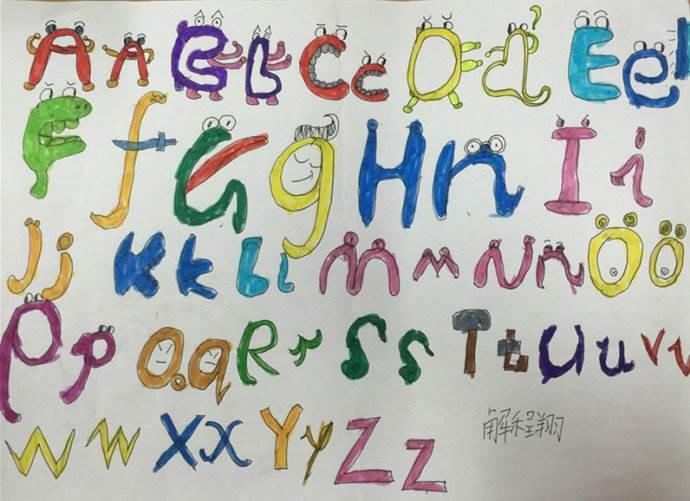 A A B b C c D d E e
F f G g H h I i
J j K k L l M m N n O o
P p Q q R r S s T t U u V v
W w X x Y y Z z 解程翔